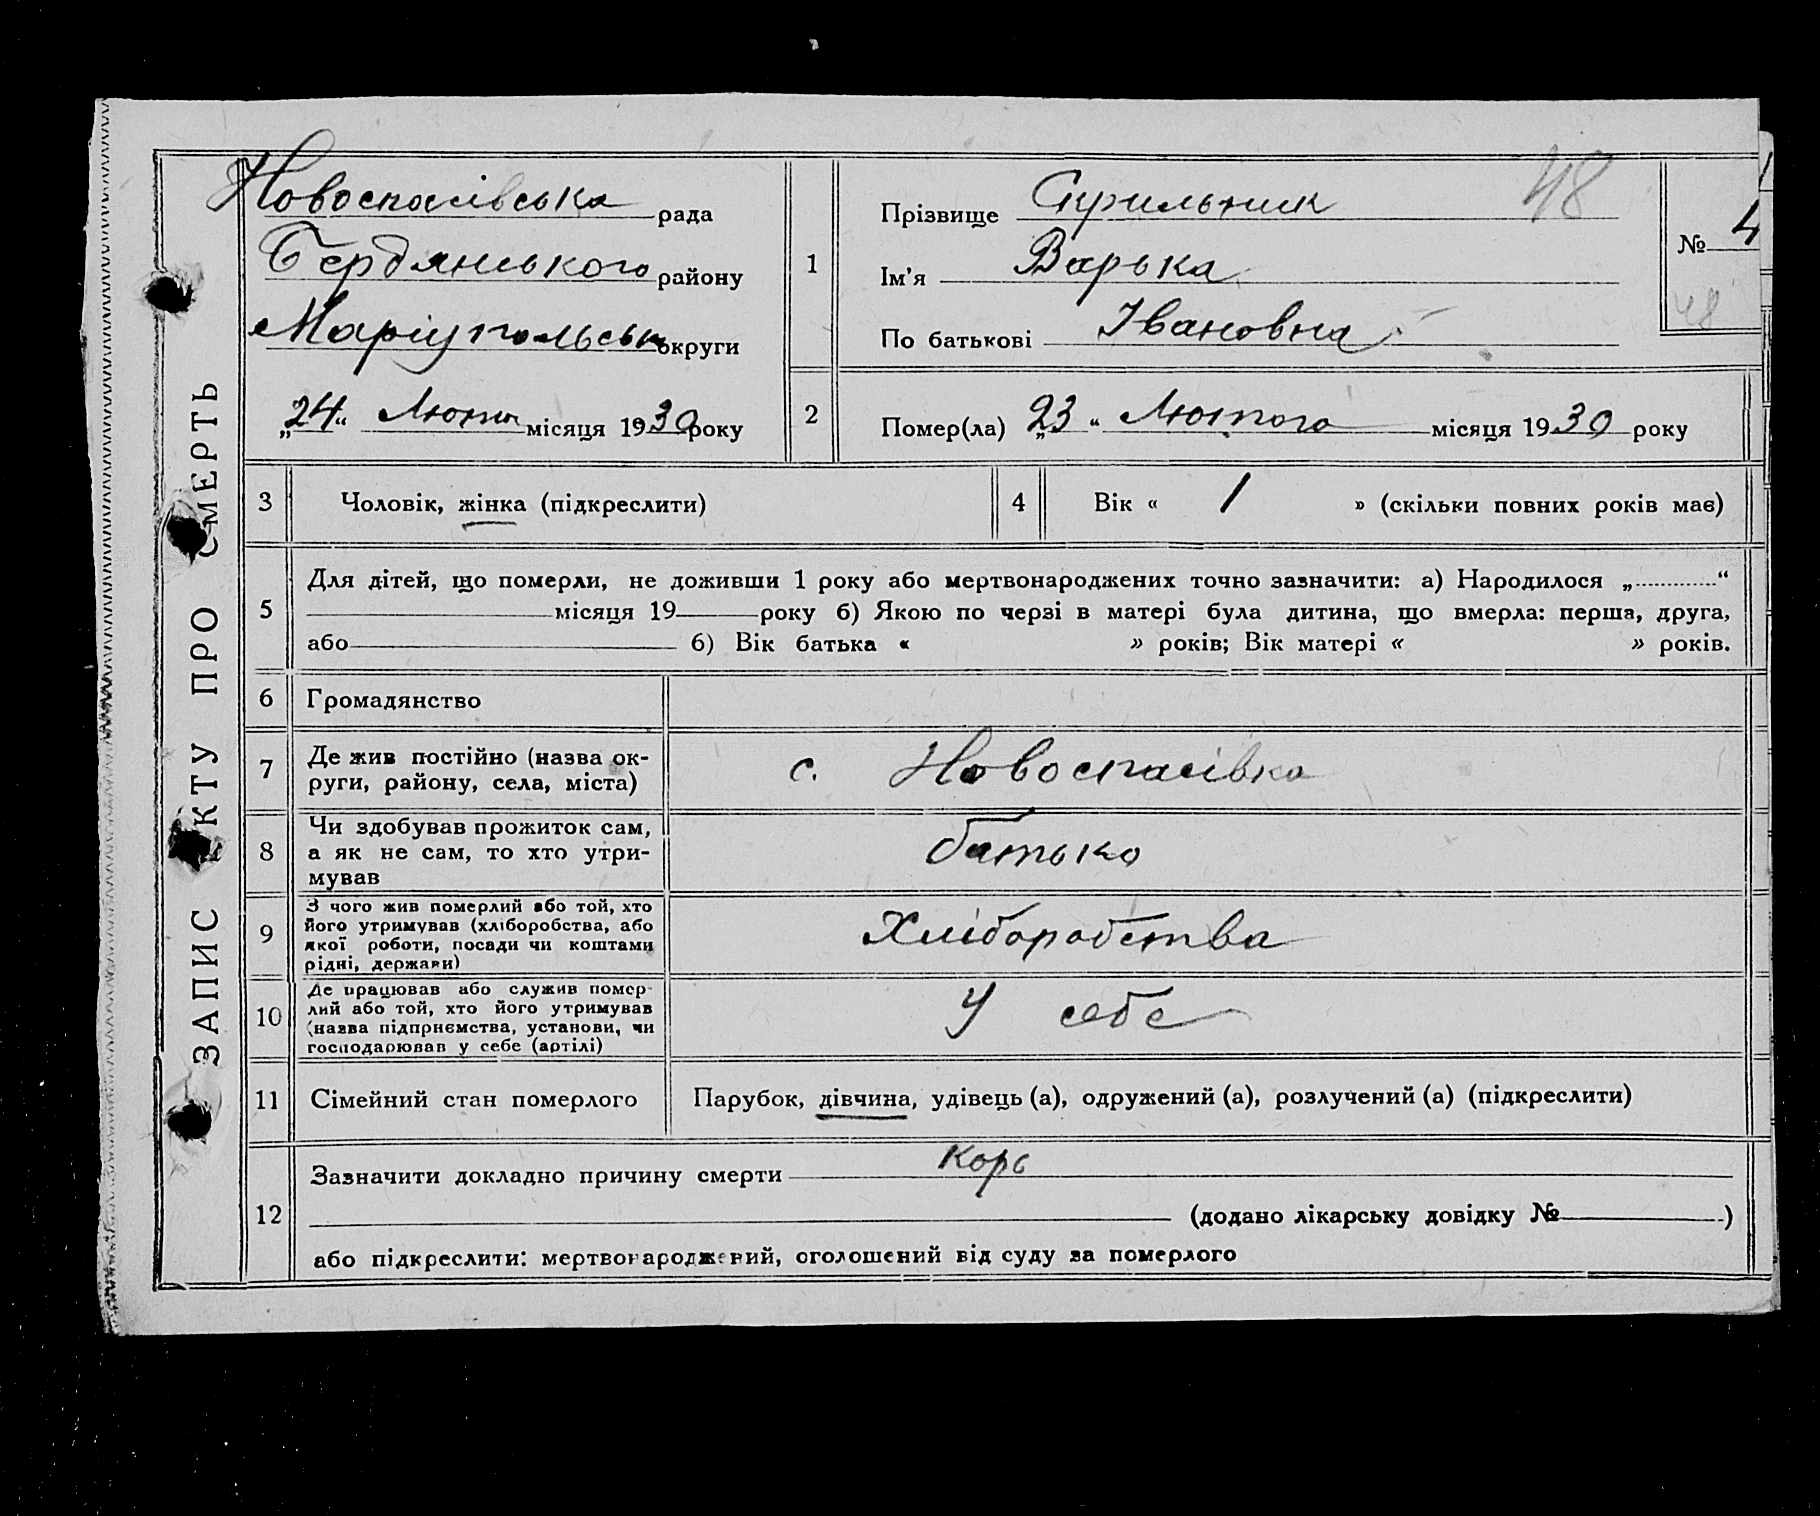 ЗАПИС АКТУ ПРО СМЕРТЬ
Новоспасівська рада
Бердянського району
Маріупольськ округи
„24“ Лютого місяця 1930 року
1
Прізвище Скрильник
Ім’я Варька
По батькові Івановна
48
№ 4
48
2
Помер(ла) „23“ Лютого місяця 1930 року
3 Чоловік, жінка (підкреслити)
4 Вік « 1 » (скільки повних років має)
5
Для дітей, що померли, не доживши 1 року або мертвонароджених точно зазначити: а) Народилося „ “
місяця 19 року б) Якою по черзі в матері була дитина, що вмерла: перша, друга,
або б) Вік батька « » років; Вік матері « » років.
6 Громадянство
7
Де жив постійно (назва ок-
руги, району, села, міста)
с. Новоспасівка
8
Чи здобував прожиток сам,
а як не сам, то хто утри-
мував
батько
9
З чого жив померлий або той, хто
його утримував (хліборобства, або
якої роботи, посади чи коштами
рідні, держави)
Хліборобства
10
Де працював або служив помер-
лий або той, хто його утримував
(назва підприємства, установи, чи
господарював у себе (артілі)
У себе
11 Сімейний стан померлого
Парубок, дівчина, удівець (а), одружений (а), розлучений (а) (підкреслити)
12
Зазначити докладно причину смерти Корь
(додано лікарську довідку № )
або підкреслити: мертвонароджений, оголошений від суду за померлого